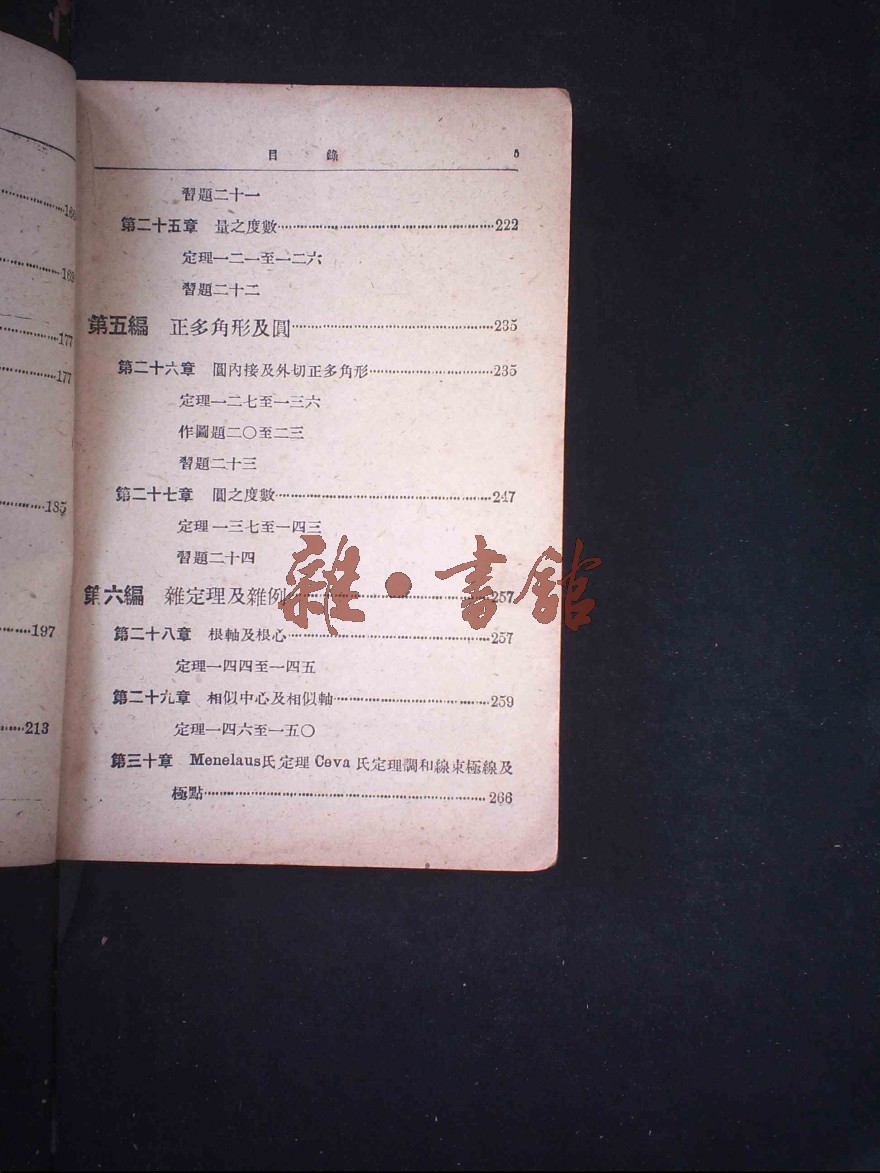 目 錄 5
習題二十一
第二十五章 量之度數……222
定理一二一至一二六
習題二十二
第五編 正多角形及圓……235
第二十六章 圓內接及外切正多角形……235
定理一二七至一三六
作圖題二〇至二三
習題二十三
第二十七章 圓之度數……247
定理一三七至一四三
習題二十四
第六編 雜定理及雜例……257
第二十八章 根軸及根心……257
定理一四四至一四五
第二十九章 相似中心及相似軸……259
定理一四六至一五〇
第三十章 Menelaus氏定理 Ceva 氏定理調和線束極線及
極點……266
雜·書館
169
177
177
185
197
213